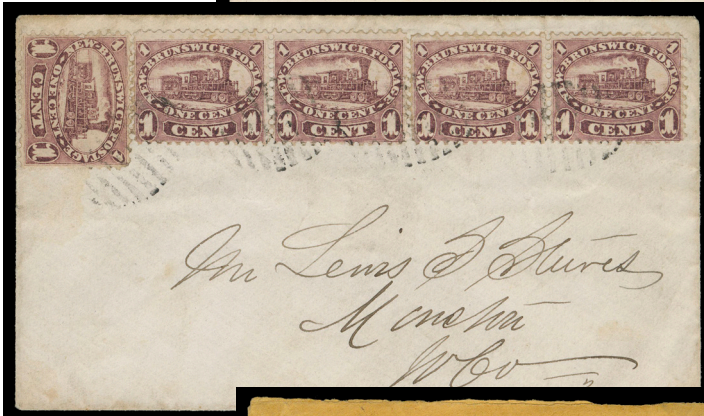 1 NEW-BRUNSWICK POSTAGE. 1
ONE CENT
1 CENT 1
1 NEW-BRUNSWICK POSTAGE. 1
ONE CENT
1 CENT 1
1 NEW-BRUNSWICK POSTAGE. 1
ONE CENT
1 CENT 1
1 NEW-BRUNSWICK POSTAGE. 1
ONE CENT
1 CENT 1
1 NEW-BRUNSWICK POSTAGE. 1
ONE CENT
1 CENT 1
Mr Lewis S Steeves
Moncton
W Co